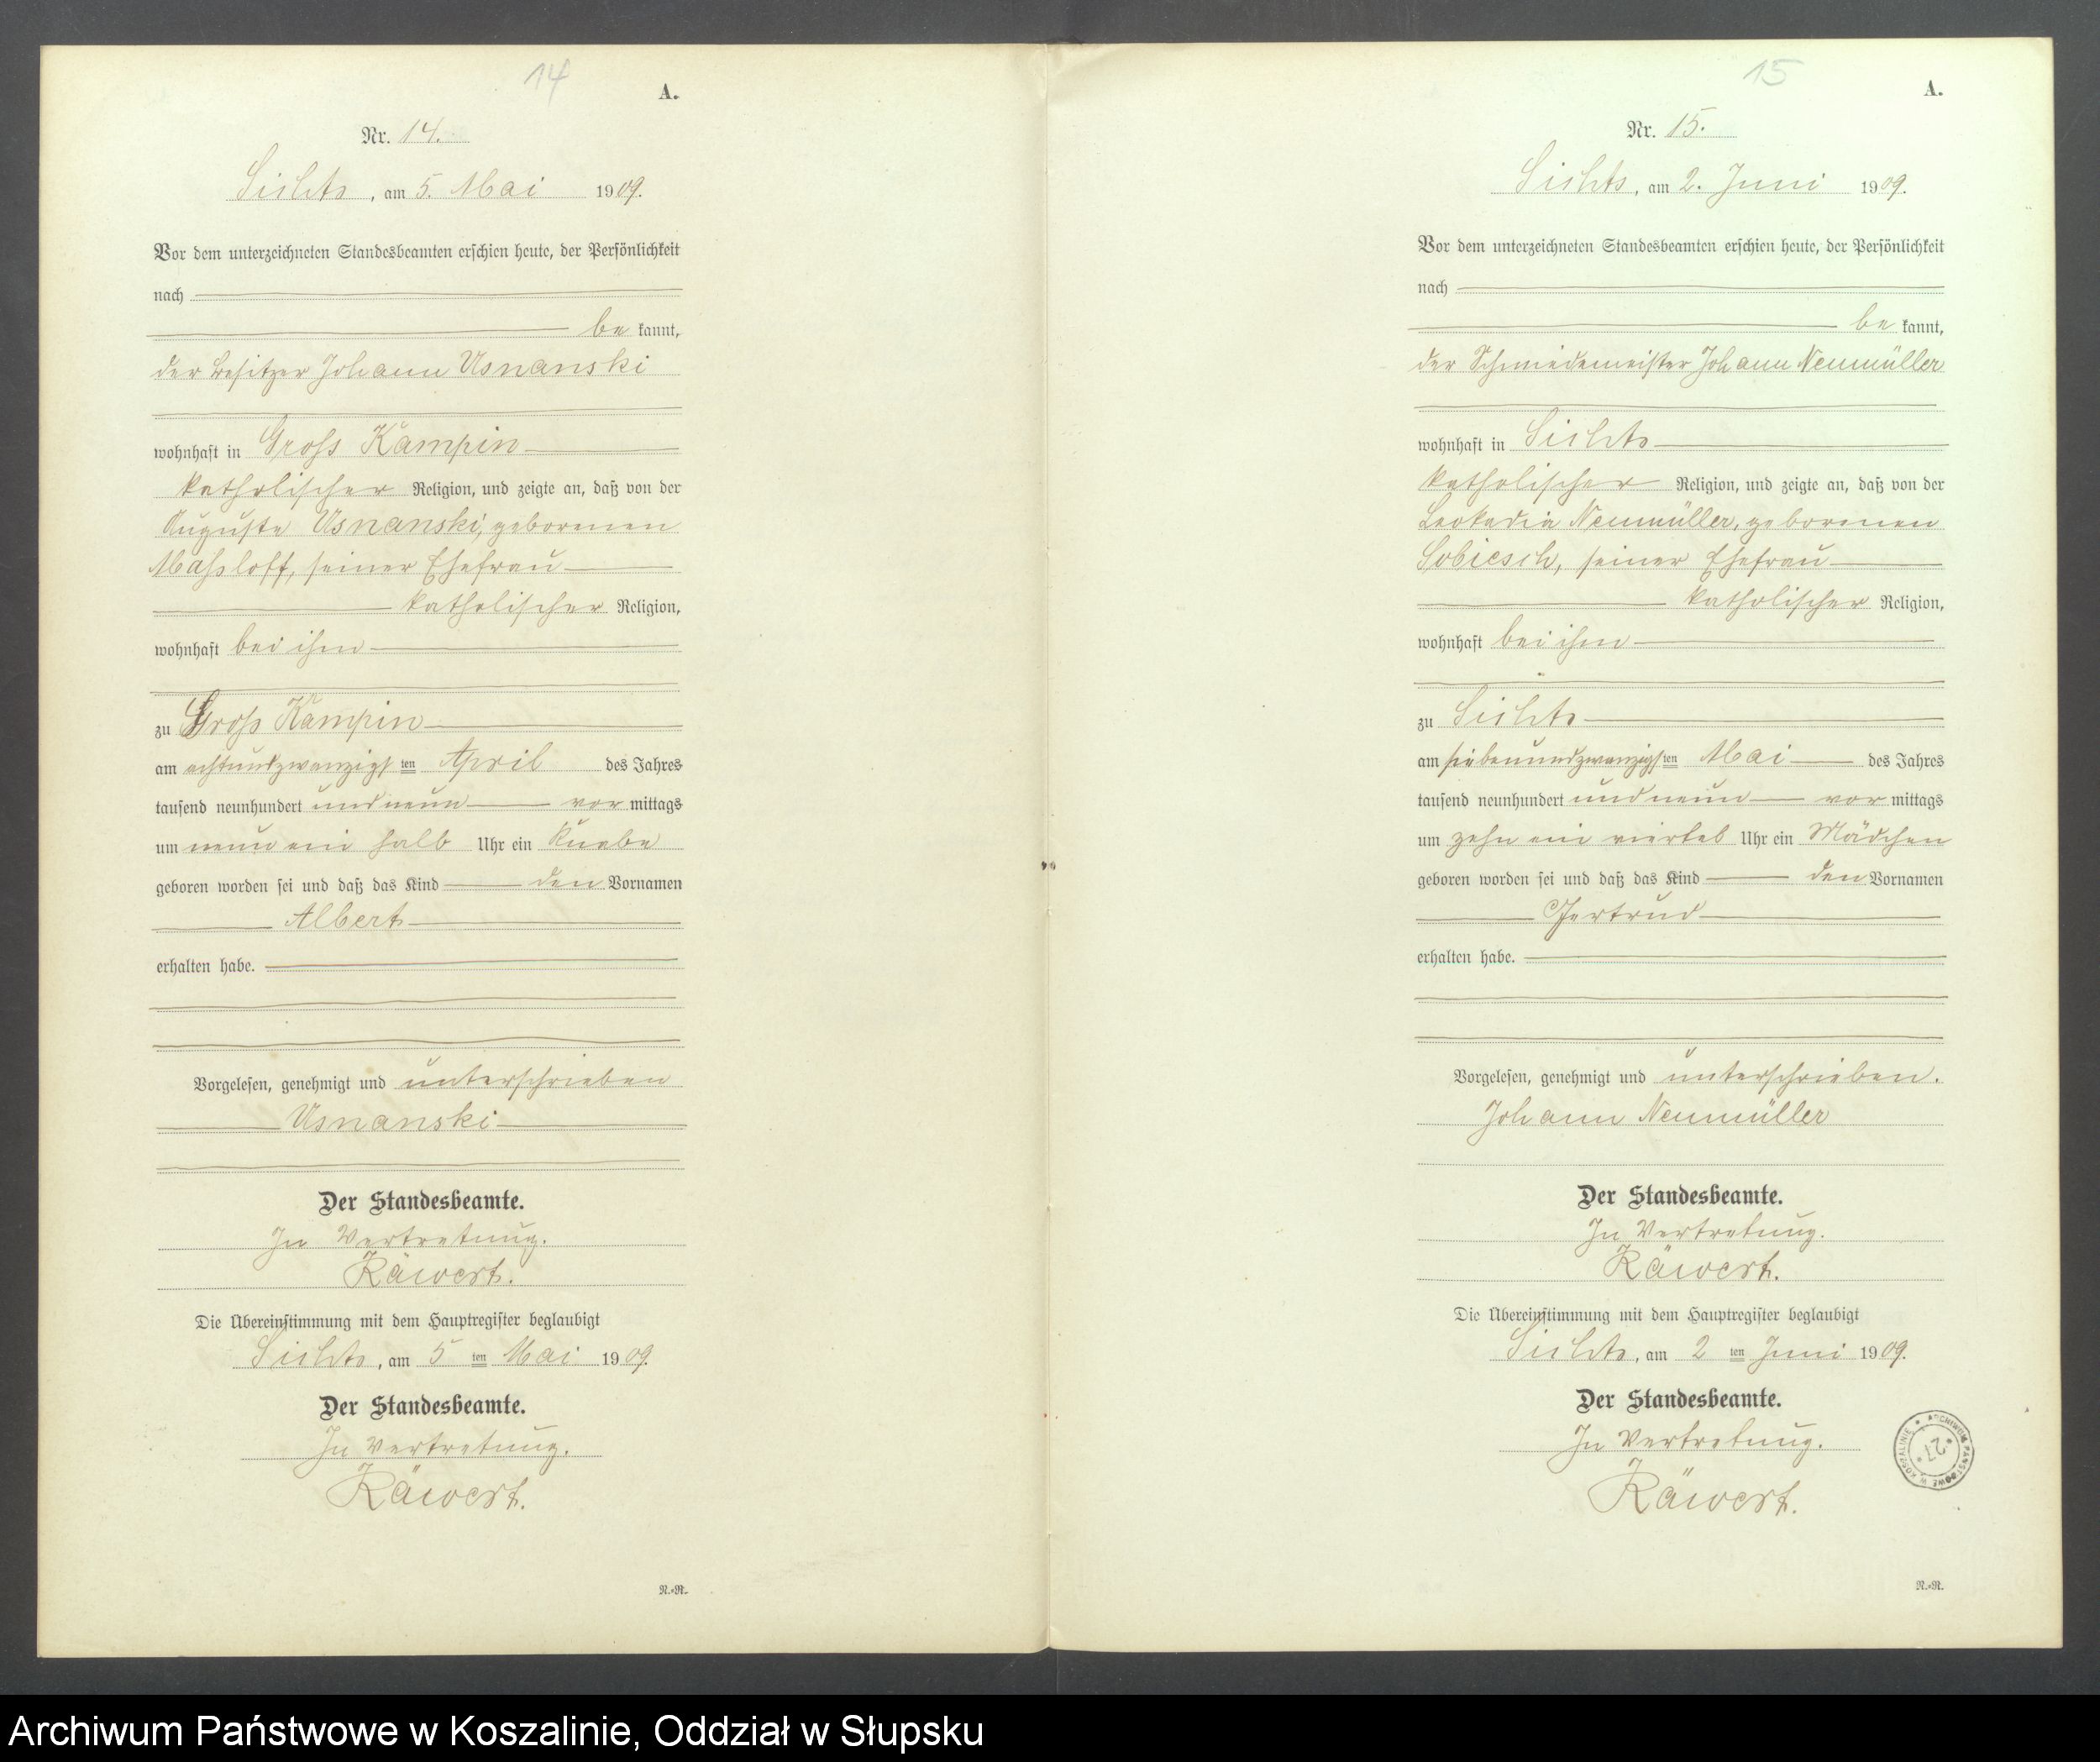 14
A.
Nr. 14.
Lichts, am 5. Mai 1909.
Vor dem unterzeichneten Standesbeamten erschien heute, der Persönlichkeit
nach
be kannt,
der Besitzer Johann Usnanski
wohnhaft in Gross Kampin
katholischer Religion, und zeigte an, daß von der
Auguste Usnanski, geborenen
Massloff, seiner Ehefrau
katholischer Religion,
wohnhaft bei ihm
zu Gross Kampin
am achtundzwanzigsten April des Jahres
tausend neunhundert und neun vor mittags
um neun ein halb Uhr ein Knabe
geboren worden sei und daß das Kind den Vornamen
Albert
erhalten habe.
Vorgelesen, genehmigt und unterschrieben
Usnanski
Der Standesbeamte.
In Vertretung.
Räwert.
Die Übereinstimmung mit dem Hauptregister beglaubigt
am 5 ten Mai 1909.
Der Standesbeamte.
In Vertretung.
Räwert.
R.-R.
15
A.
Nr. 15.
am 2. Juni 1909.
Vor dem unterzeichneten Standesbeamten erschien heute, der Persönlichkeit
nach
be kannt,
der Schmiedemeister Johann Neumüller
wohnhaft in
katholischer Religion, und zeigte an, daß von der
Leokadia Neumüller, geborenen
Sobiesch, seiner Ehefrau
katholischer Religion,
wohnhaft bei ihm
zu
am siebenundzwanzigsten Mai des Jahres
tausend neunhundert und neun vor mittags
um zehn ein viertel Uhr ein Mädchen
geboren worden sei und daß das Kind den Vornamen
Gertrud
erhalten habe.
Vorgelesen, genehmigt und unterschrieben.
Johann Neumüller
Der Standesbeamte.
In Vertretung.
Räwert.
Die Übereinstimmung mit dem Hauptregister beglaubigt
am 2 ten Juni 1909.
Der Standesbeamte.
In Vertretung.
Räwert.
ARCHIWUM PAŃSTWOWE W KOSZALINIE
27
R.-R.
Archiwum Państwowe w Koszalinie, Oddział w Słupsku